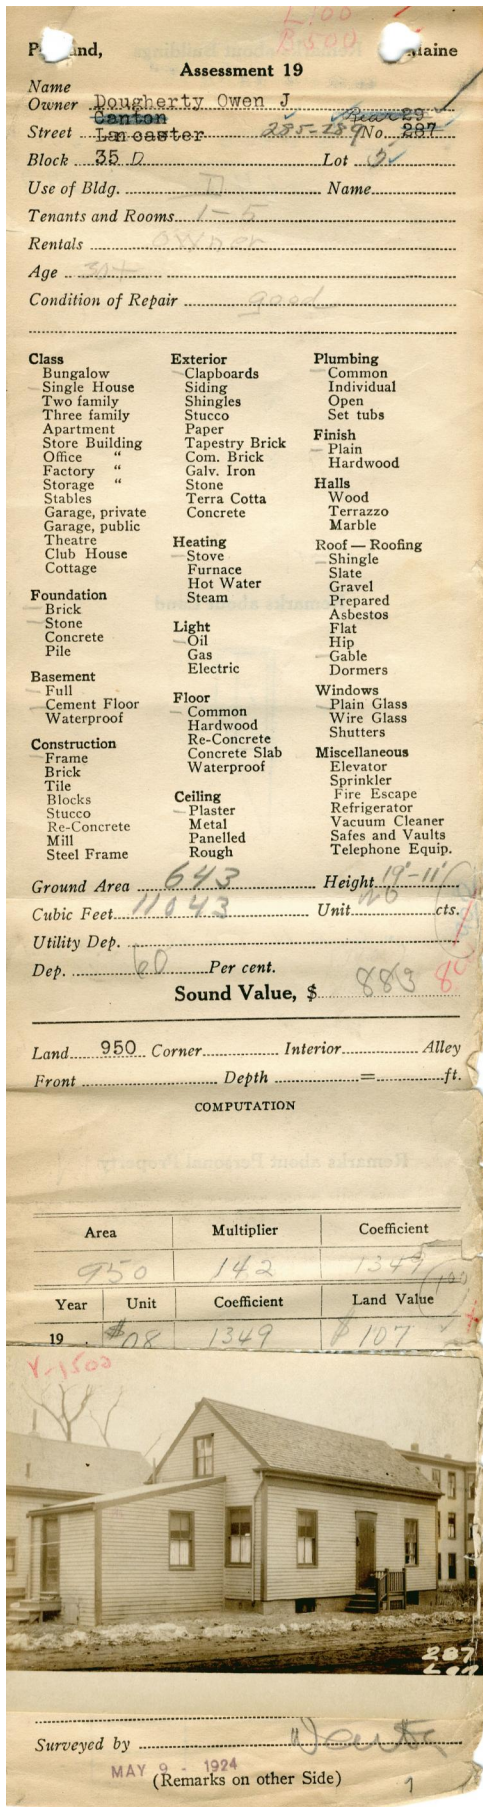 L 100
B 500
P land, Maine
Assessment 19
Name
Owner Dougherty Owen J
Canton Rear 29
Street Lancaster 285-289 No. 287
Block 35 D Lot 5
Use of Bldg. D Name
Tenants and Rooms 1-5
Rentals owner
Age 30+
Condition of Repair good
Class
Bungalow
Single House
Two family
Three family
Apartment
Store Building
Office "
Factory "
Storage "
Stables
Garage, private
Garage, public
Theatre
Club House
Cottage
Foundation
Brick
Stone
Concrete
Pile
Basement
Full
Cement Floor
Waterproof
Construction
Frame
Brick
Tile
Blocks
Stucco
Re-Concrete
Mill
Steel Frame
Exterior
Clapboards
Siding
Shingles
Stucco
Paper
Tapestry Brick
Com. Brick
Galv. Iron
Stone
Terra Cotta
Concrete
Heating
Stove
Furnace
Hot Water
Steam
Light
Oil
Gas
Electric
Floor
Common
Hardwood
Re-Concrete
Concrete Slab
Waterproof
Ceiling
Plaster
Metal
Panelled
Rough
Plumbing
Common
Individual
Open
Set tubs
Finish
Plain
Hardwood
Halls
Wood
Terrazzo
Marble
Roof — Roofing
Shingle
Slate
Gravel
Prepared
Asbestos
Flat
Hip
Gable
Dormers
Windows
Plain Glass
Wire Glass
Shutters
Miscellaneous
Elevator
Sprinkler
Fire Escape
Refrigerator
Vacuum Cleaner
Safes and Vaults
Telephone Equip.
Ground Area 643 Height 19'-11"
Cubic Feet 11043 Unit 20 cts.
Utility Dep.
Dep. 60 Per cent.
Sound Value, $ 883
Land 950 Corner Interior Alley
Front Depth = ft.
COMPUTATION
Area Multiplier Coefficient
950 142 1349
Year Unit Coefficient Land Value
19 . $08 1349 $107
Y-1500
287
Surveyed by
MAY 9 - 1924
(Remarks on other Side)